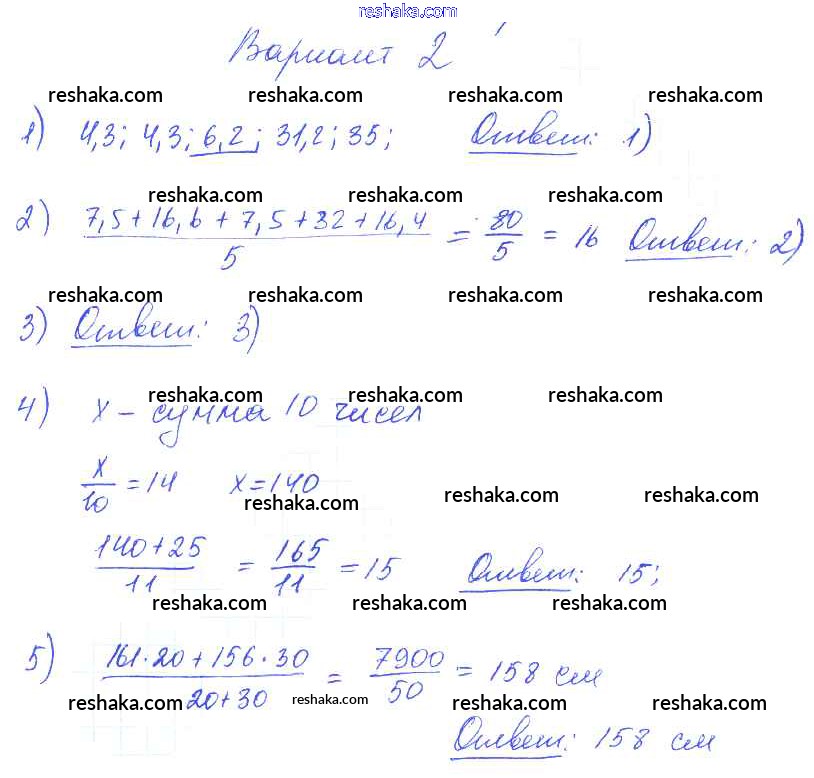 reshaka.com
Вариант 2
reshaka.com reshaka.com reshaka.com reshaka.com
1) 4,3; 4,3; 6,2; 31,2; 35; Ответ: 1)
reshaka.com reshaka.com reshaka.com
2) (7,5+16,6+7,5+32+16,4)/5 = 80/5 = 16 Ответ: 2)
reshaka.com reshaka.com reshaka.com reshaka.com
3) Ответ: 3)
reshaka.com reshaka.com reshaka.com
4) x – сумма 10 чисел
x/10 = 14 x=140
reshaka.com reshaka.com reshaka.com
(140+25)/11 = 165/11 = 15 Ответ: 15;
reshaka.com reshaka.com reshaka.com
5) (161·20+156·30)/(20+30) = 7900/50 = 158 см
reshaka.com reshaka.com reshaka.com reshaka.com
Ответ: 158 см